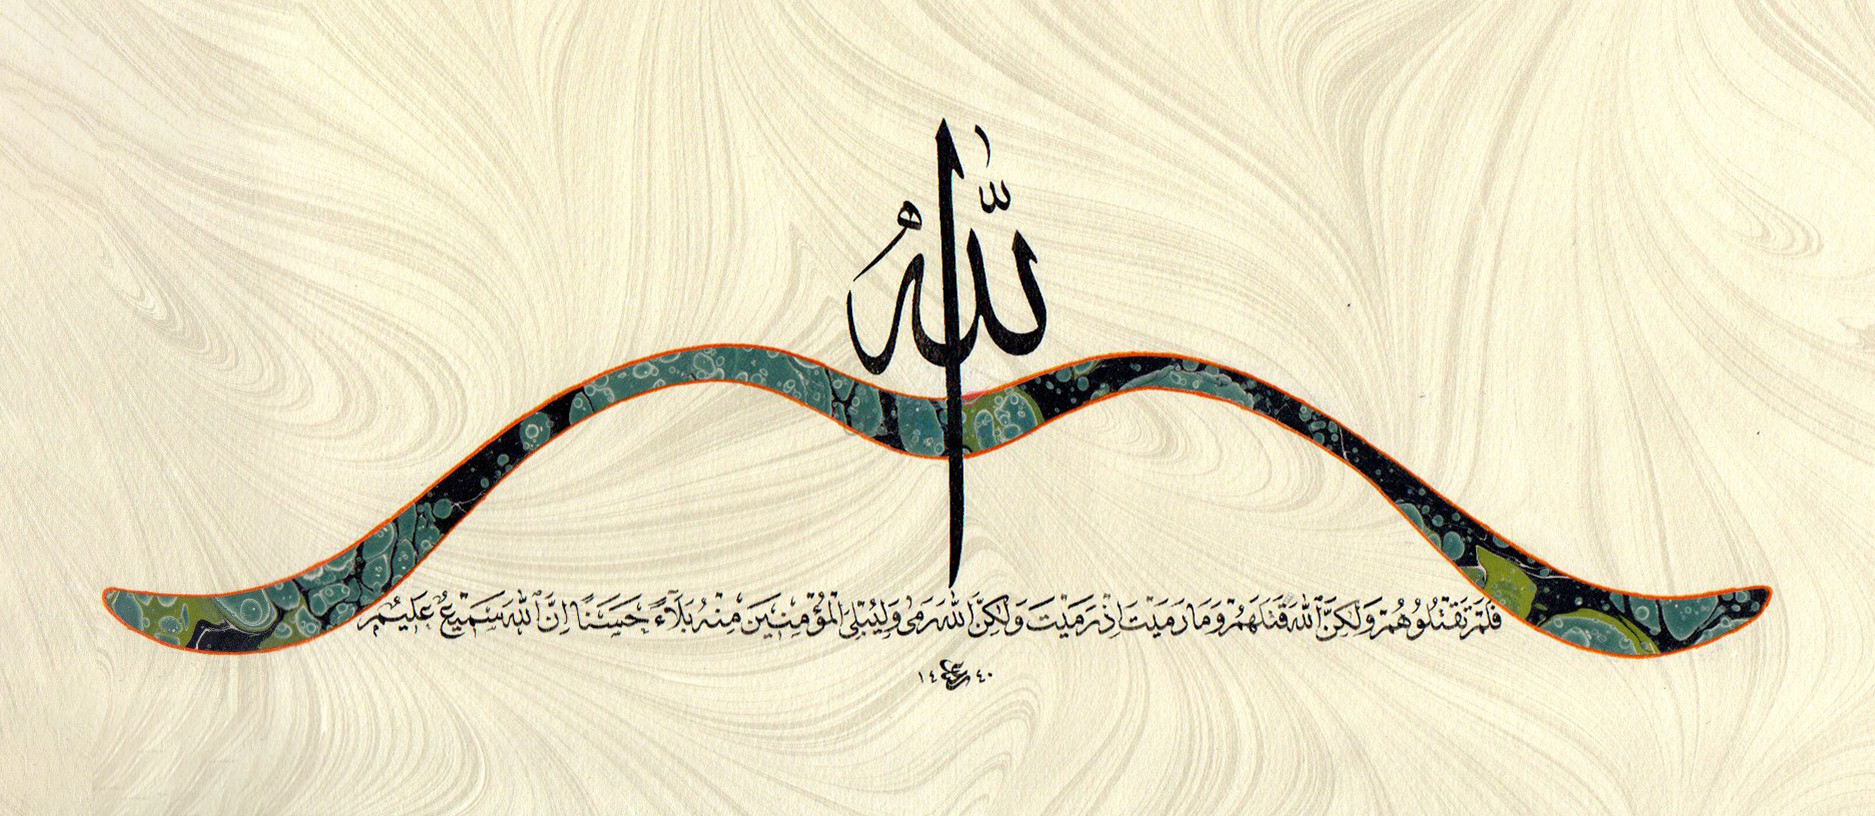 اللّٰهُ
فَلَمْ تَقْتُلُوهُمْ وَلٰكِنَّ اللّٰهَ قَتَلَهُمْ وَمَا رَمَيْتَ اِذْ رَمَيْتَ وَلٰكِنَّ اللّٰهَ رَمٰى وَلِيُبْلِيَ الْمُؤْمِنِينَ مِنْهُ بَلَٓاءً حَسَنًا اِنَّ اللّٰهَ سَمِيعٌ عَلِيمٌ
١٤ ٤٠